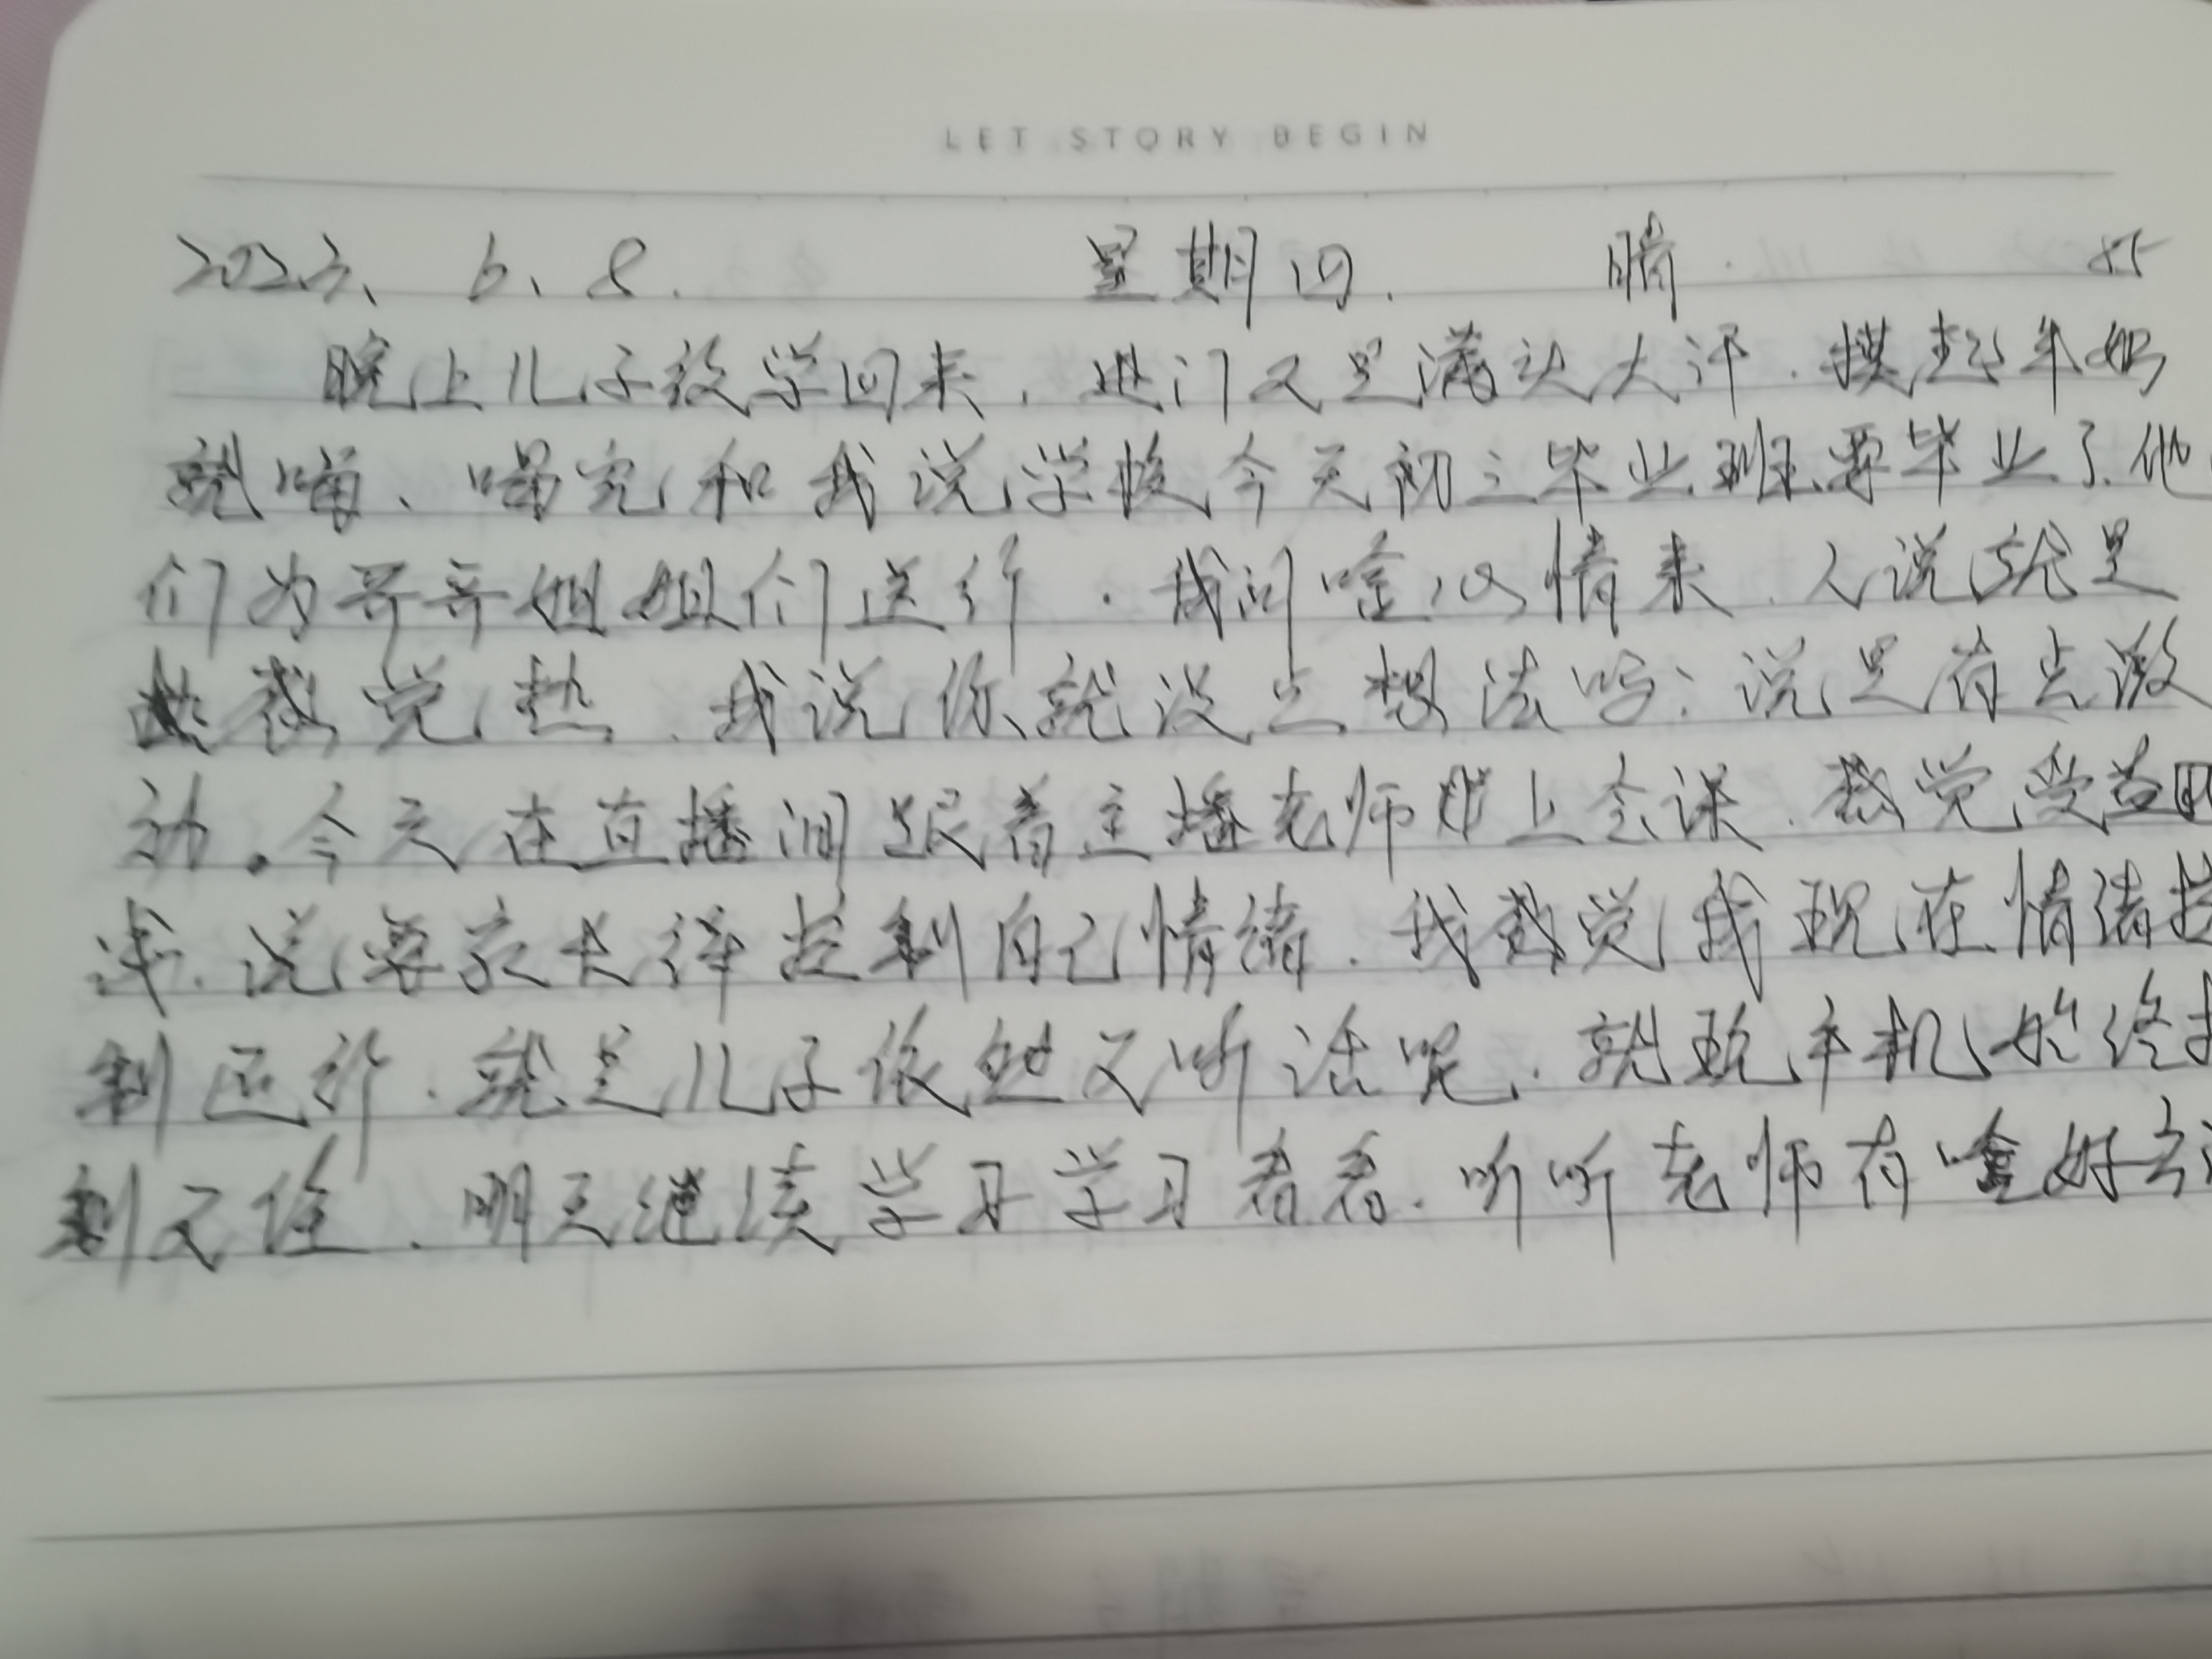 LET STORY BEGIN
2023、6、8. 星期四. 晴.
晚上儿子放学回来，进门又是满头大汗.摸起牛奶
就喝、喝完和我说学校今天初三毕业班要毕业了.他
们为哥哥姐姐们送行.我问啥心情来.人说就是
感觉热.我说你就没点想法吗：说是有点激
动。今天在直播间跟着主播老师上会课.感觉受益
浅.说要家长得控制自己情绪.我感觉我现在情绪控
制还行.就是儿子依然不听话呢.就玩手机始终
制不住.明天继续学习学习看看.听听老师有啥好